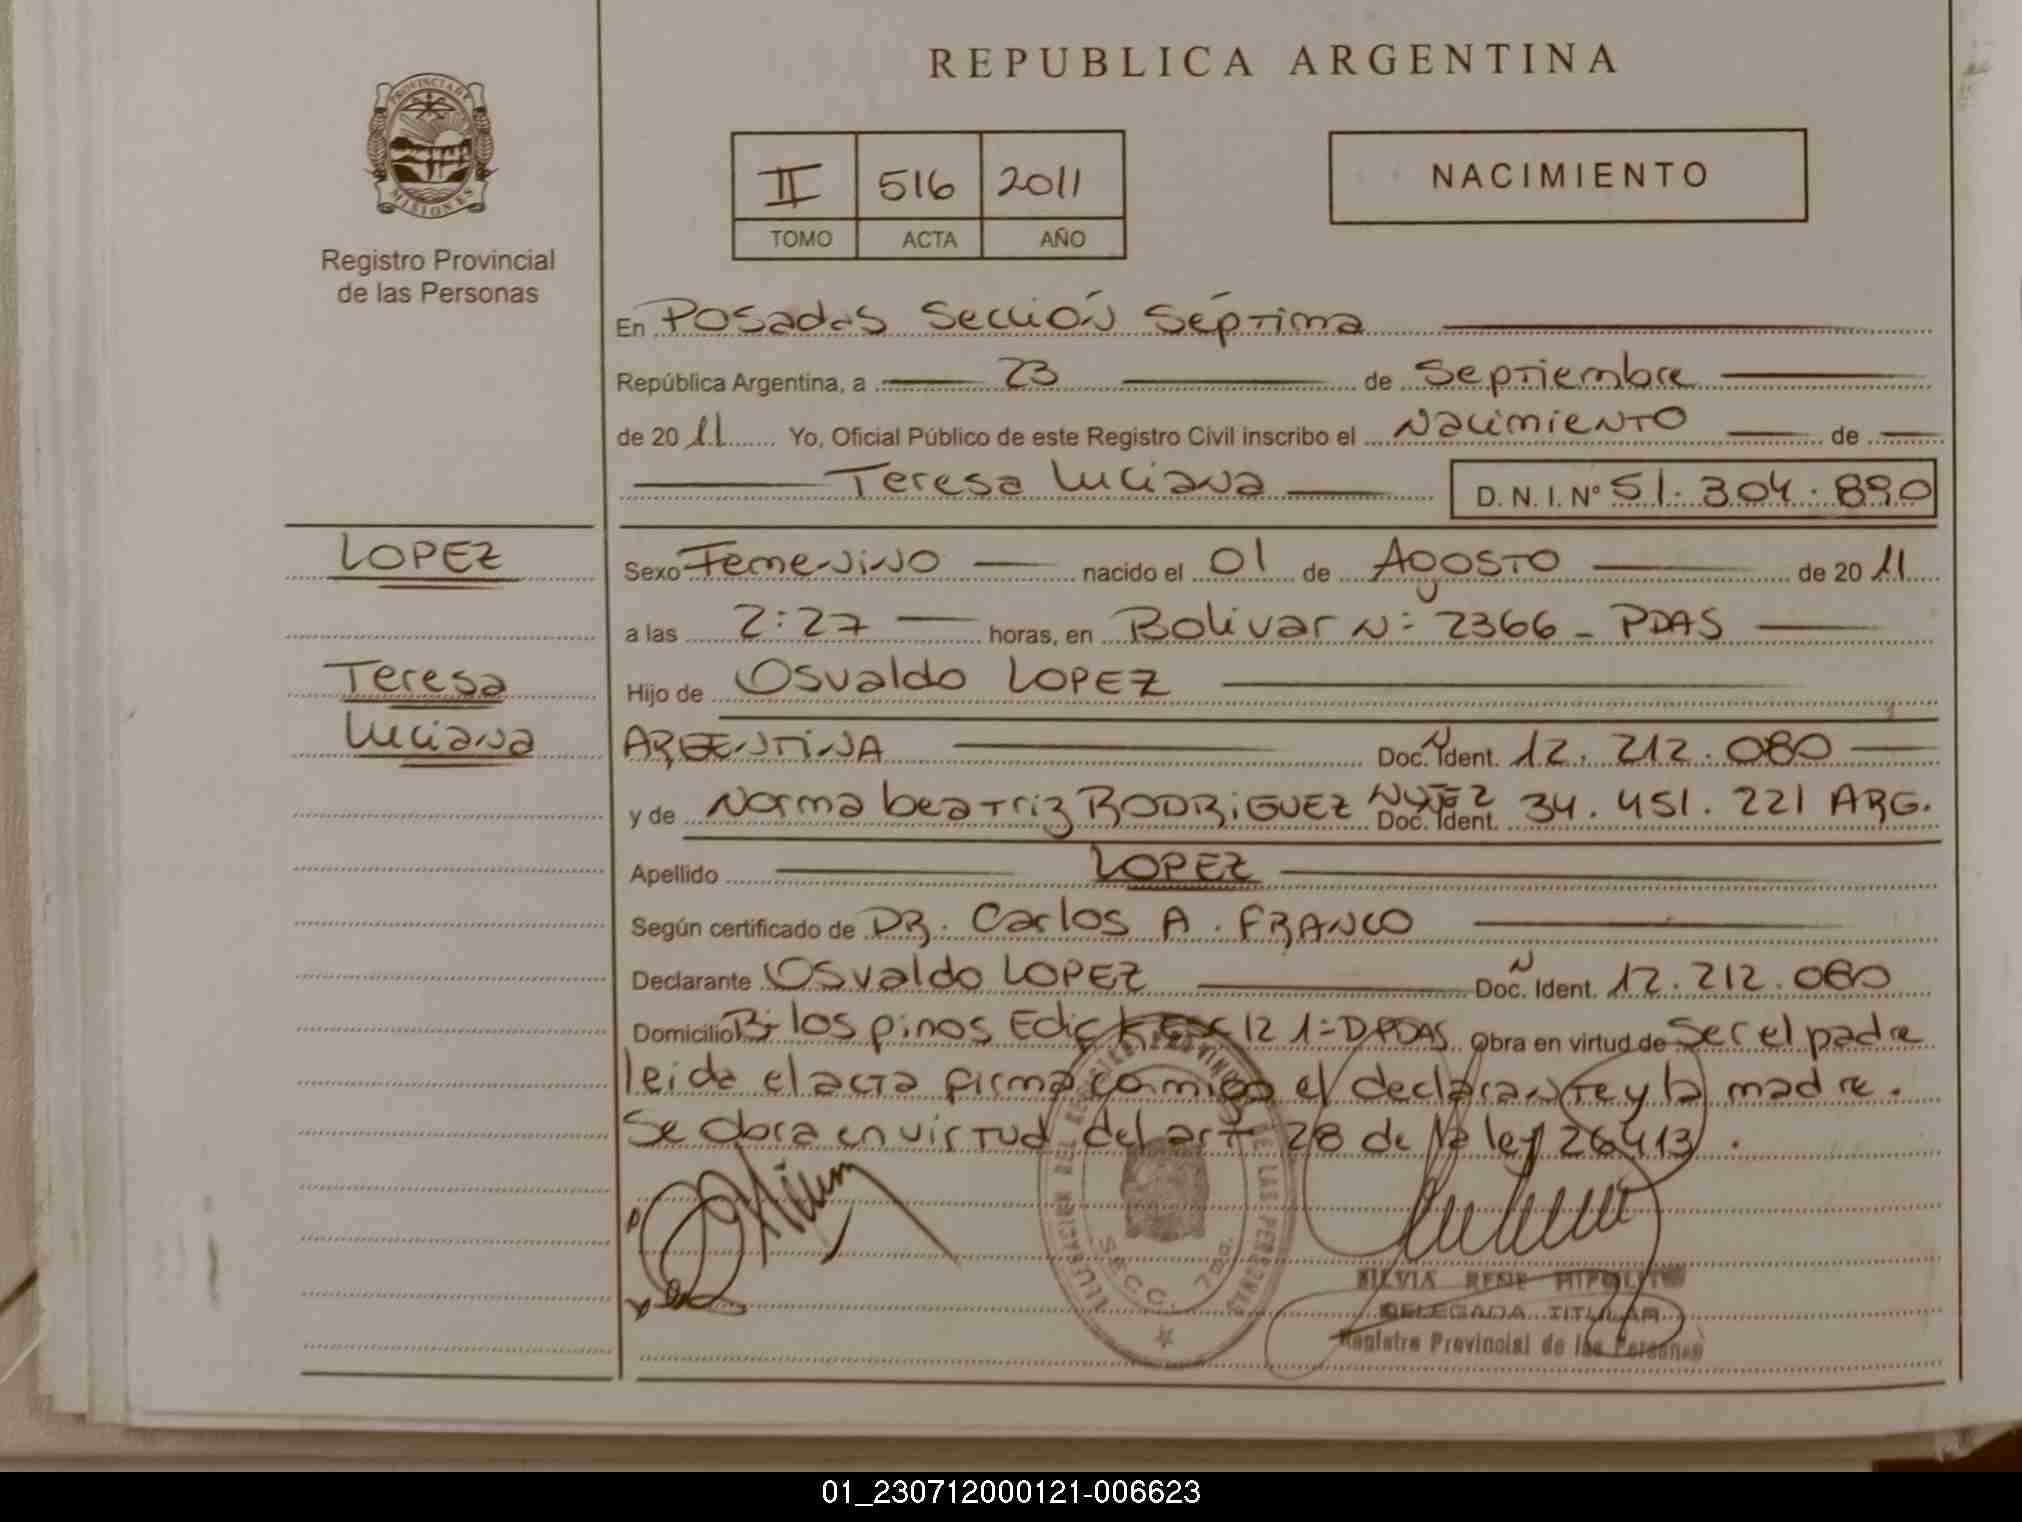 REPUBLICA ARGENTINA
PROVINCIA DE
MISIONES
Registro Provincial
de las Personas
II 516 2011
TOMO ACTA AÑO
NACIMIENTO
En Posadas Sección Séptima
República Argentina, a 23 de Septiembre
de 2011 Yo, Oficial Público de este Registro Civil inscribo el Nacimiento de
Teresa Luciana D. N. I. N° 51.304.890
LOPEZ
Teresa
Luciana
Sexo Femenino nacido el 01 de Agosto de 2011
a las 2:27 horas, en Bolivar N: 2366 - PDAS
Hijo de Osvaldo LOPEZ
ARGENTINA Doc. Ident. 12.212.080
y de Norma beatriz RODRiGUEZ Doc. Ident. 34.451.221 ARG.
Apellido LOPEZ
Según certificado de DR. Carlos A. FRANCO
Declarante Osvaldo LOPEZ Doc. Ident. 12.212.080
Domicilio los pinos Edic 12 Obra en virtud de Ser el padre
leida el acta firma conmigo el declarante y la madre.
Se obra en virtud del art 28 de la ley 26413.
SECC. 7ma.
SILVIA RENE HIPOLITO
DELEGADA TITULAR
Registro Provincial de las Personas
01_230712000121-006623